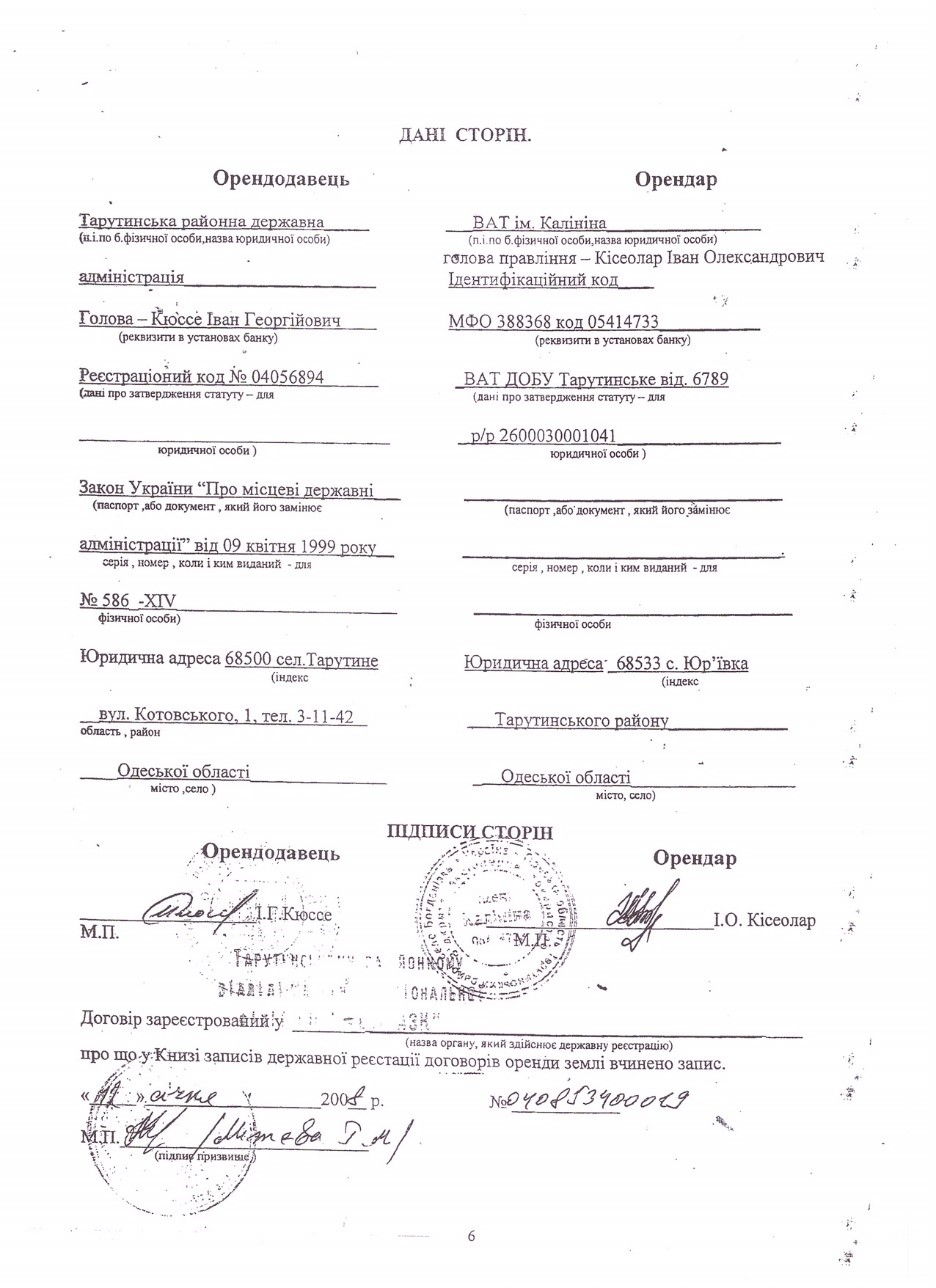 ДАНІ СТОРІН.
Орендодавець
Тарутинська районна державна
(п.і.по б.фізичної особи,назва юридичної особи)
адміністрація
Голова – Кюссе Іван Георгійович
(реквізити в установах банку)
Реєстраціоний код № 04056894
(дані про затвердження статуту – для
юридичної особи )
Закон України “Про місцеві державні
(паспорт ,або документ , який його замінює
адміністрації” від 09 квітня 1999 року
серія , номер , коли і ким виданий - для
№ 586 -XIV
фізичної особи)
Юридична адреса 68500 сел.Тарутине
(індекс
вул. Котовського, 1, тел. 3-11-42
область , район
Одеської області
місто ,село )
Орендар
ВАТ ім. Калініна
(п.і.по б.фізичної особи,назва юридичної особи)
голова правління – Кісеолар Іван Олександрович
Ідентифікаційний код
МФО 388368 код 05414733
(реквізити в установах банку)
ВАТ ДОБУ Тарутинське від. 6789
(дані про затвердження статуту – для
р/р 2600030001041
юридичної особи )
(паспорт ,або документ , який його замінює
серія , номер , коли і ким виданий - для
фізичної особи
Юридична адреса 68533 с. Юр’ївка
(індекс
Тарутинського району
Одеської області
місто, село)
ПІДПИСИ СТОРІН
Орендодавець
Орендар
І.Г.Кюссе
М.П.
М.П.
І.О. Кісеолар
Договір зареєстрований у
(назва органу, який здійснює державну реєстрацію)
про що у Книзі записів державної реєстації договорів оренди землі вчинено запис.
« » січне 2008 р. №040853400019
М.П.
(підпис призвище)
6